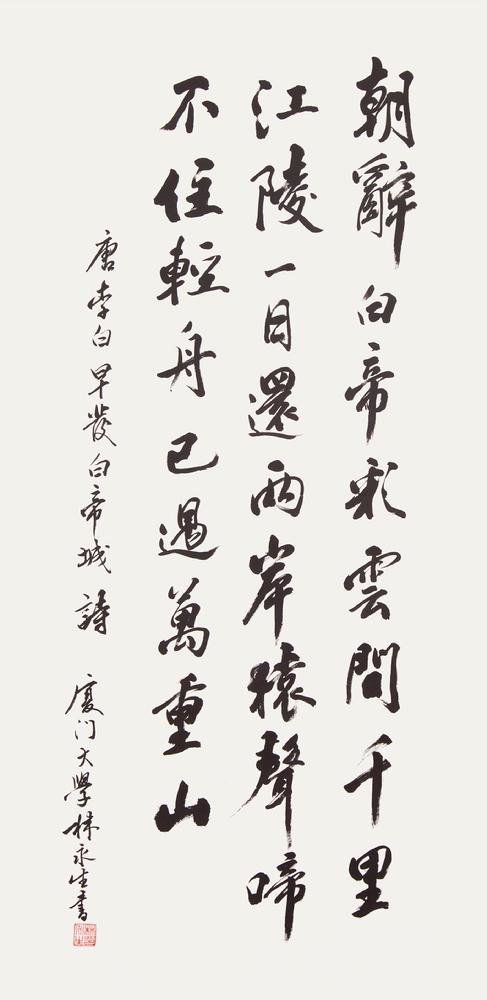 朝辭白帝彩雲間千里
江陵一日還兩岸猿聲啼
不住輕舟已過萬重山
唐李白早發白帝城詩 廈门大學林永生書